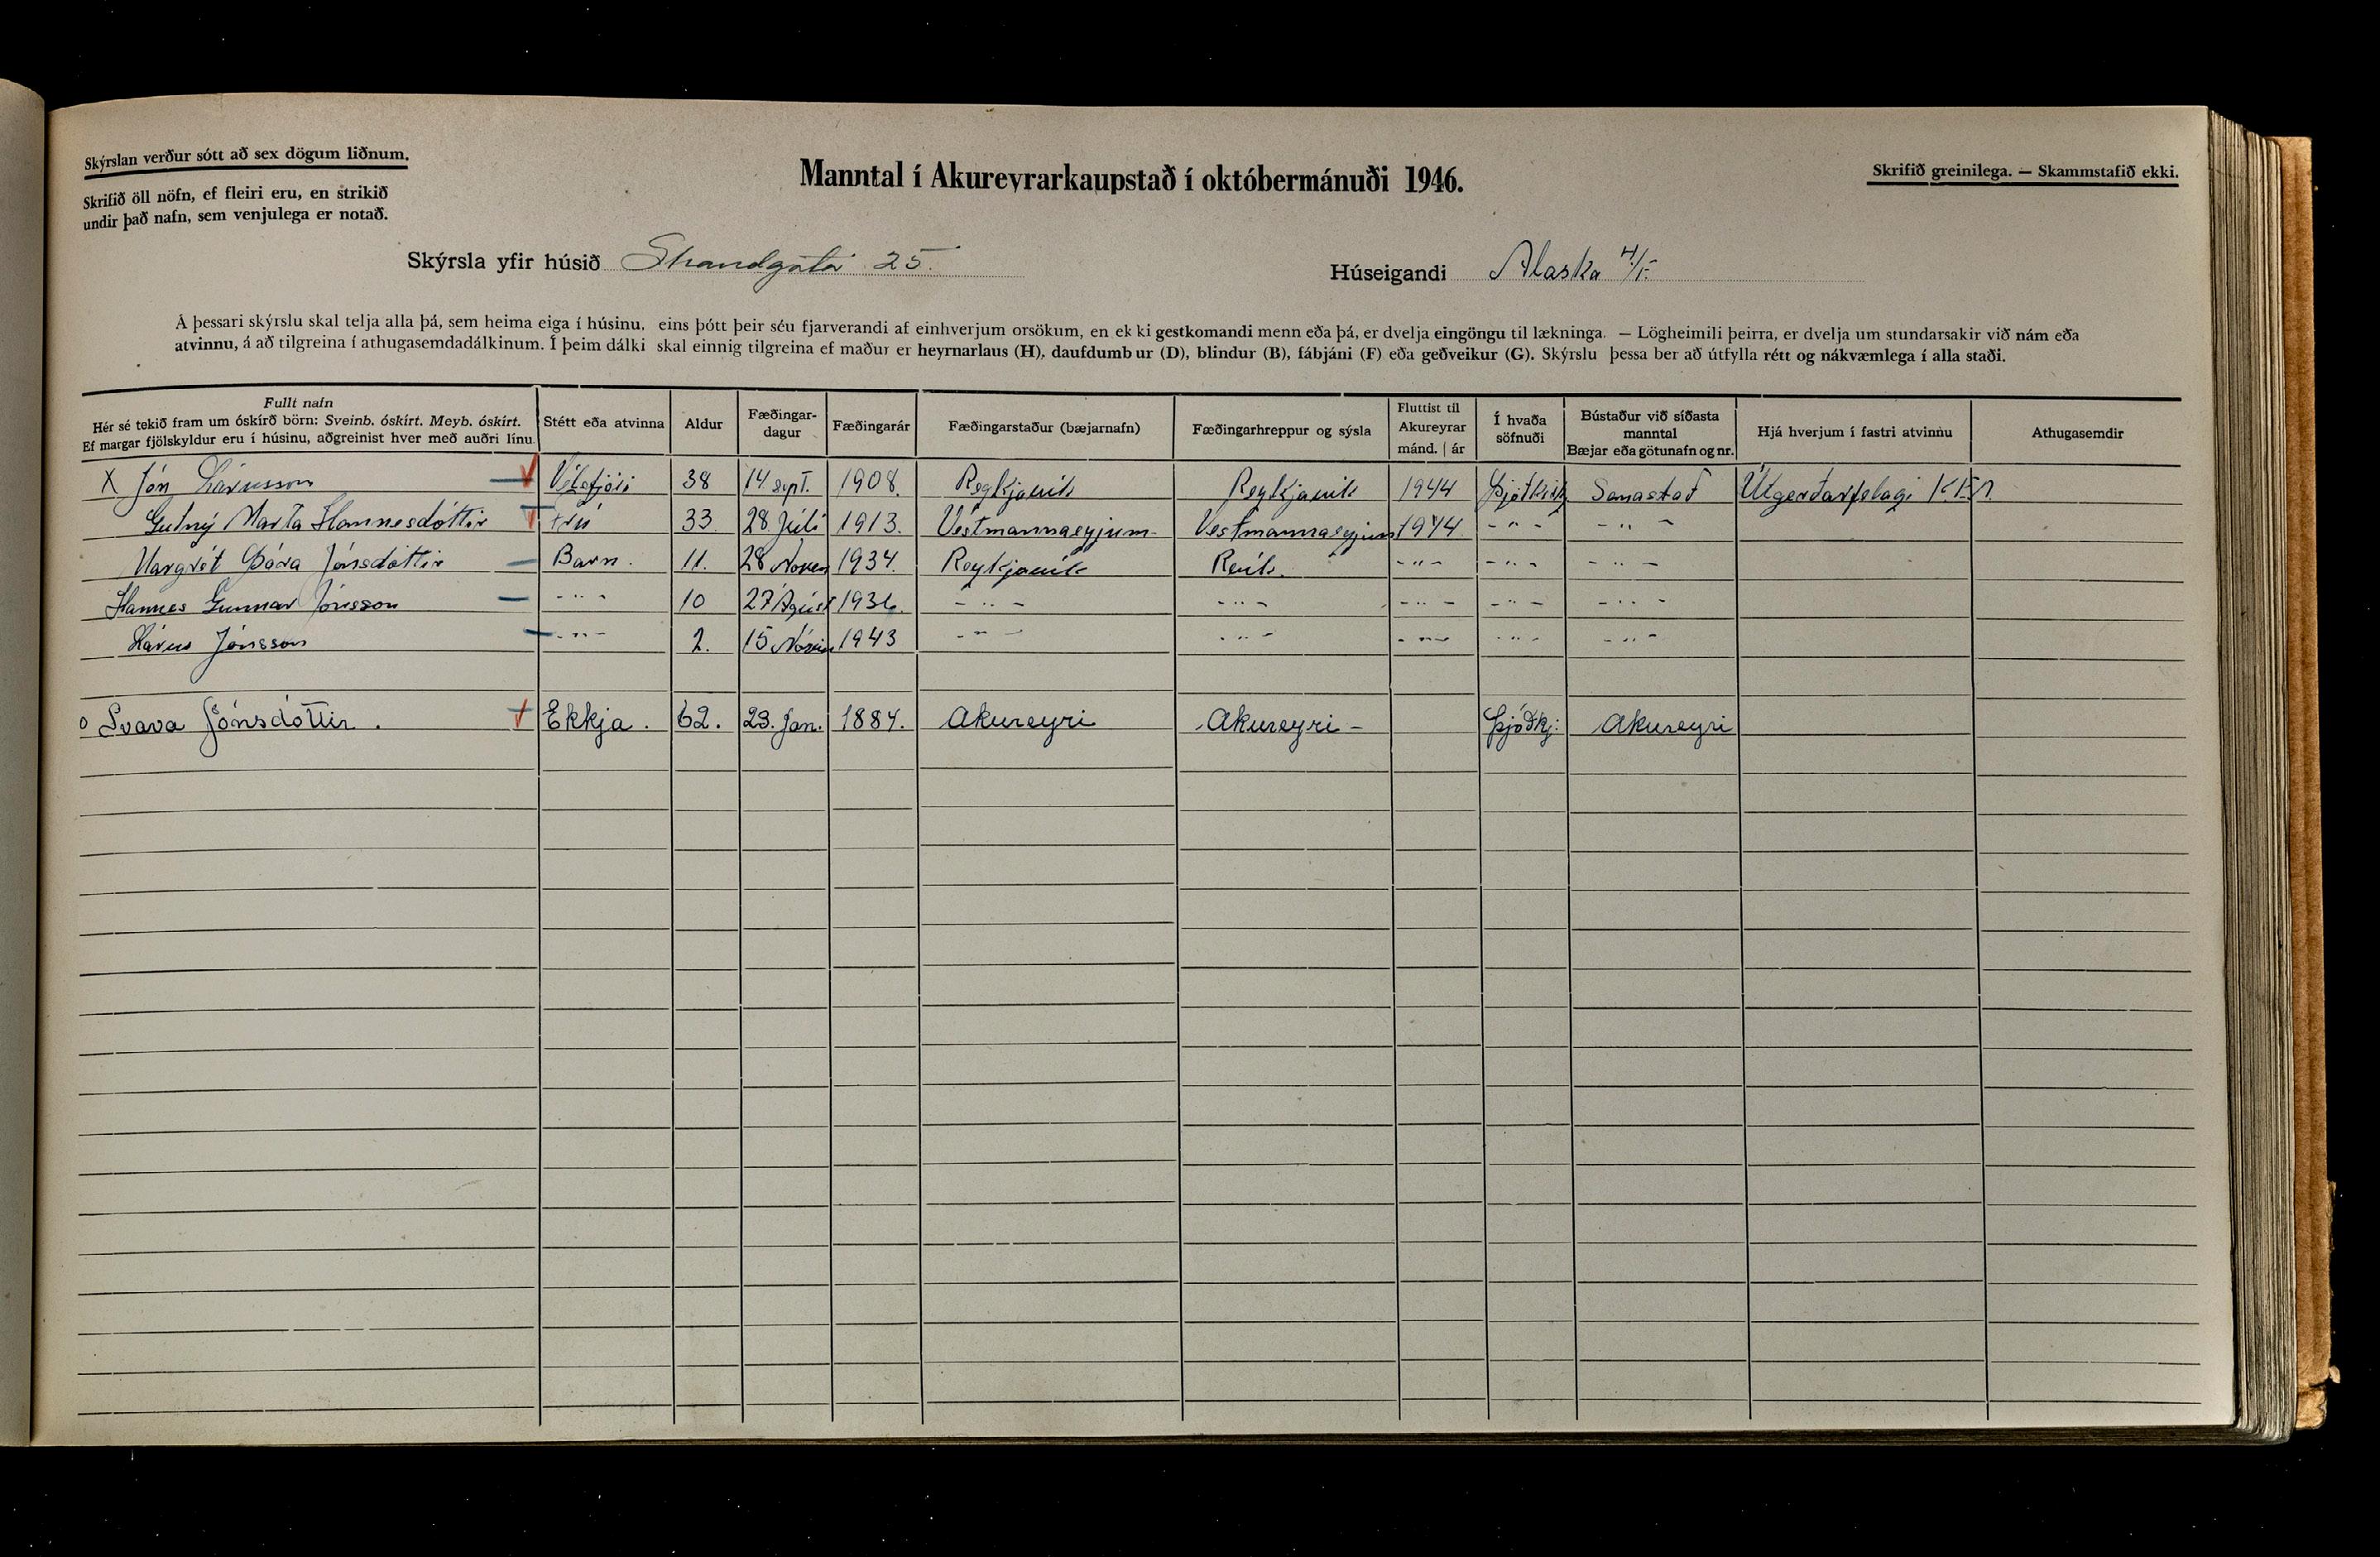 Skýrslan verður sótt að sex dögum liðnum.
Skrifið öll nöfn, ef fleiri eru, en strikið
undir það nafn, sem venjulega er notað.
Manntal í Akureyrarkaupstað í októbermánuði 1946.
Skrifið greinilega. — Skammstafið ekki.
Skýrsla yfir húsið Strandgata 25.
Húseigandi Alaska H/F
Á þessari skýrslu skal telja alla þá, sem heima eiga í húsinu, eins þótt þeir séu fjarverandi af einhverjum orsökum, en ekki gestkomandi menn eða þá, er dvelja eingöngu til lækninga. — Lögheimili þeirra, er dvelja um stundarsakir við nám eða
atvinnu, á að tilgreina í athugasemdadálkinum. Í þeim dálki skal einnig tilgreina ef maður er heyrnarlaus (H), daufdumbur (D), blindur (B), fábjáni (F) eða geðveikur (G). Skýrslu þessa ber að útfylla rétt og nákvæmlega í alla staði.
Fullt nafn
Hér sé tekið fram um óskírð börn: Sveinb. óskírt. Meyb. óskírt.
Ef margar fjölskyldur eru í húsinu, aðgreinist hver með auðri línu.
Stétt eða atvinna
Aldur
Fæðingar-
dagur
Fæðingarár
Fæðingarstaður (bæjarnafn)
Fæðingarhreppur og sýsla
Fluttist til
Akureyrar
mánd. | ár
Í hvaða
söfnuði
Bústaður við síðasta
manntal
Bæjar eða götunafn og nr.
Hjá hverjum í fastri atvinnu
Athugasemdir
X Jón Lárusson 38 14. sept. 1908. Reykjavík Reykjavík 1944 Sama stað Útgerðarfelagi KEA
Guðný Marta Hannesdóttir Frú 33 28 Júlí 1913. Vestmannaeyjum Vestmannaeyjum 1944 - " - - " -
Margrét Þóra Jónsdóttir Barn. 11. 28 Novem 1934. Reykjavík Rvík. - " - - " - - " -
Hannes Gunnar Jónsson - " - 10 27 Ágúst 1936. - " - - " - - " - - " - - " -
Lárus Jónsson - " - 2. 15 Nóvem 1943 - " - - " - - " - - " - - " -
o Svava Jónsdóttir. Ekkja. 62. 23. Jan. 1884. Akureyri Akureyri - Þjóðkj: Akureyri